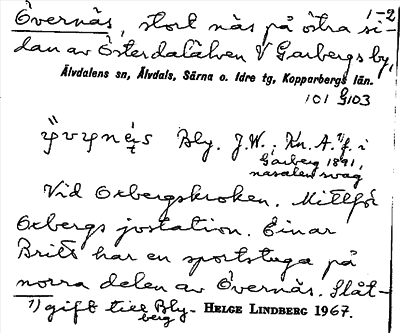 1-2
Övernäs, stort näs på östra si-
dan av Österdalälven V Garbergs by,
Älvdalens sn, Älvdals, Särna o. Idre tg, Kopparbergs län.
101 G103
Bly. J.W.; Kn. A. 1) f. i
Garberg 1891,
nasalen svag
Vid Oxbergskroken. Mittför
Oxbergs jvstation. Einar
Brits har en sportstuga på
norra delen av Övernäs. Slåt-
1) gift till Bly-
berg
HELGE LINDBERG 1967.